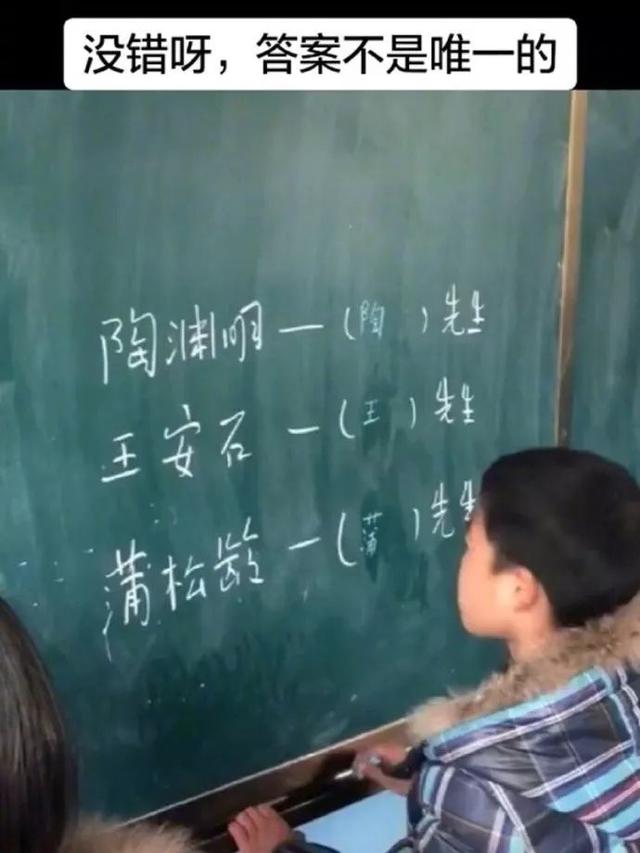 没错呀，答案不是唯一的
陶渊明—(陶)先生
王安石—(王)先生
蒲松龄—(蒲)先生